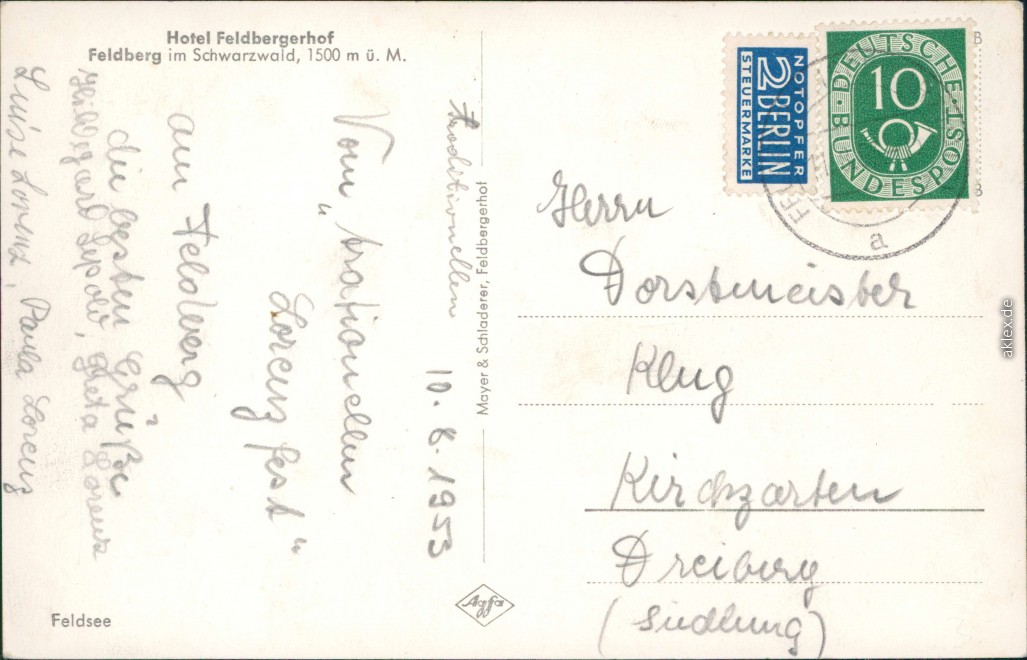 Hotel Feldbergerhof
Feldberg im Schwarzwald, 1500 m ü. M.
10. 8. 1953
traditionellen
Vom „trationellen
Lorenz fest“
am Feldberg
die besten Grüße
Hildegard Lipold, Greta Lorenz
Luise Lorenz, Paula Lorenz
Feldsee
Mayer & Schladerer, Feldbergerhof
Agfa
NOTOPFER
2 BERLIN
STEUERMARKE
DEUTSCHE
10
BUNDESPOST
a
Herrn
Forstmeister
Klug
Kirchzarten
Dreiberg
(Siedlung)
aklex.de